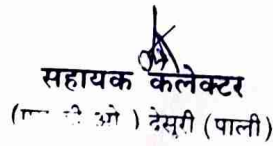 सहायक कलेक्टर
( ओ ) देसूरी (पाली)